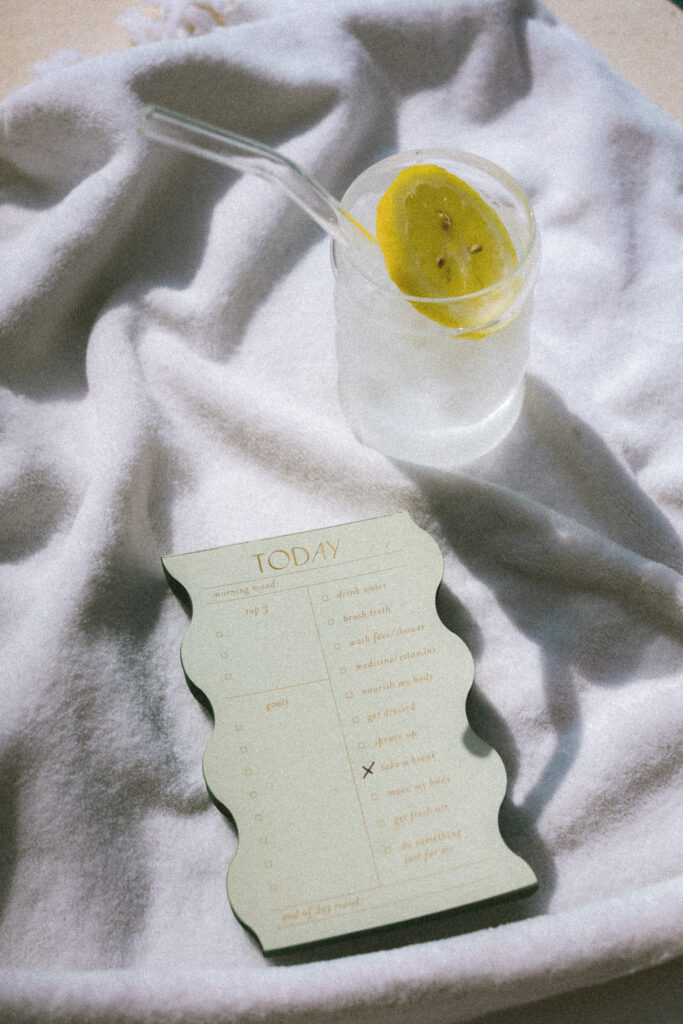 TODAY
morning mood:
top 3
goals
drink water
brush teeth
wash face/shower
medicine/vitamins
nourish my body
get dressed
spruce up
take a break
move my body
get fresh air
do something
just for me
end of day mood